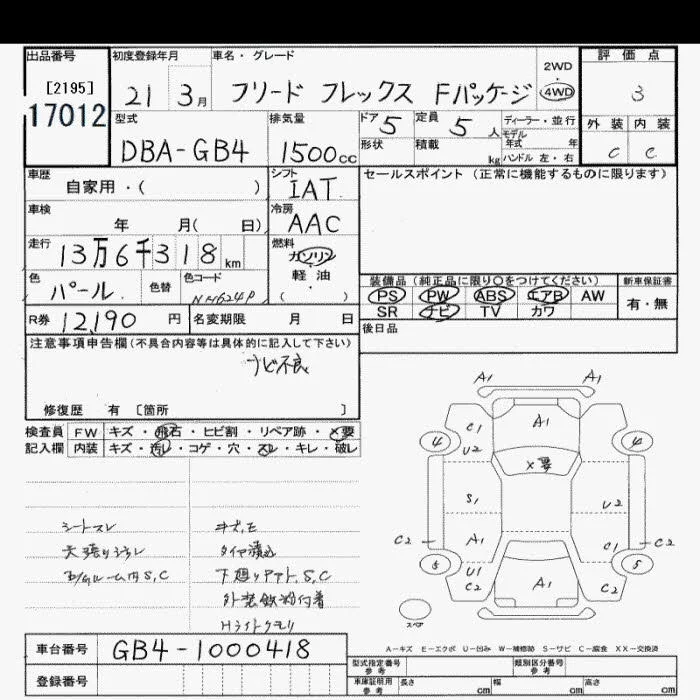 出品番号
[2195]
17012
初度登録年月
21 3月
車名・グレード
フリード フレックス Fパッケージ
2WD
4WD
評価点
3
外装 内装
C C
型式
DBA-GB4
排気量
1500cc
ドア 5
定員 5人
ディーラー・並行
モデル
年式 年
ハンドル 左・右
形状
積載 kg
車歴
自家用・( )
シフト
IAT
セールスポイント(正常に機能するものに限ります)
車検
年 月( 日)
冷房
AAC
走行
13万6千318km
燃料
ガソリン
軽油
( )
色
パール
色替
色コード
NH624P
装備品(純正品に限り○をつけてください)
新車保証書
PS PW ABS エアB AW
SR ナビ TV カワ
有・無
R券 12,190円
名変期限 月 日
後日品
注意事項申告欄(不具合内容等は具体的に記入して下さい)
ナビ不良
修復歴 有 [箇所 ]
検査員 FW キズ・飛石・ヒビ割・リペア跡・×要
記入欄 内装 キズ・汚レ・コゲ・穴・スレ・キレ・破レ
シートスレ
キズ,E
天張りシミ
下廻りサビ,S,C
外装鉄粉付着
Hライトクモリ
A1 A1
C1 A1
4 4
U2
×要
S1 U2
C2 A1 C1 C2
5 U1 5
C2 A1 C2
スペア
A-キズ E-エクボ U-凹み W-補修跡 S-サビ C-腐食 XX-交換済
車台番号
GB4-1000418
登録番号
型式指定番号
参考
類別区分番号
参考
車庫証明用
参考
長さ cm 幅 cm 高さ cm